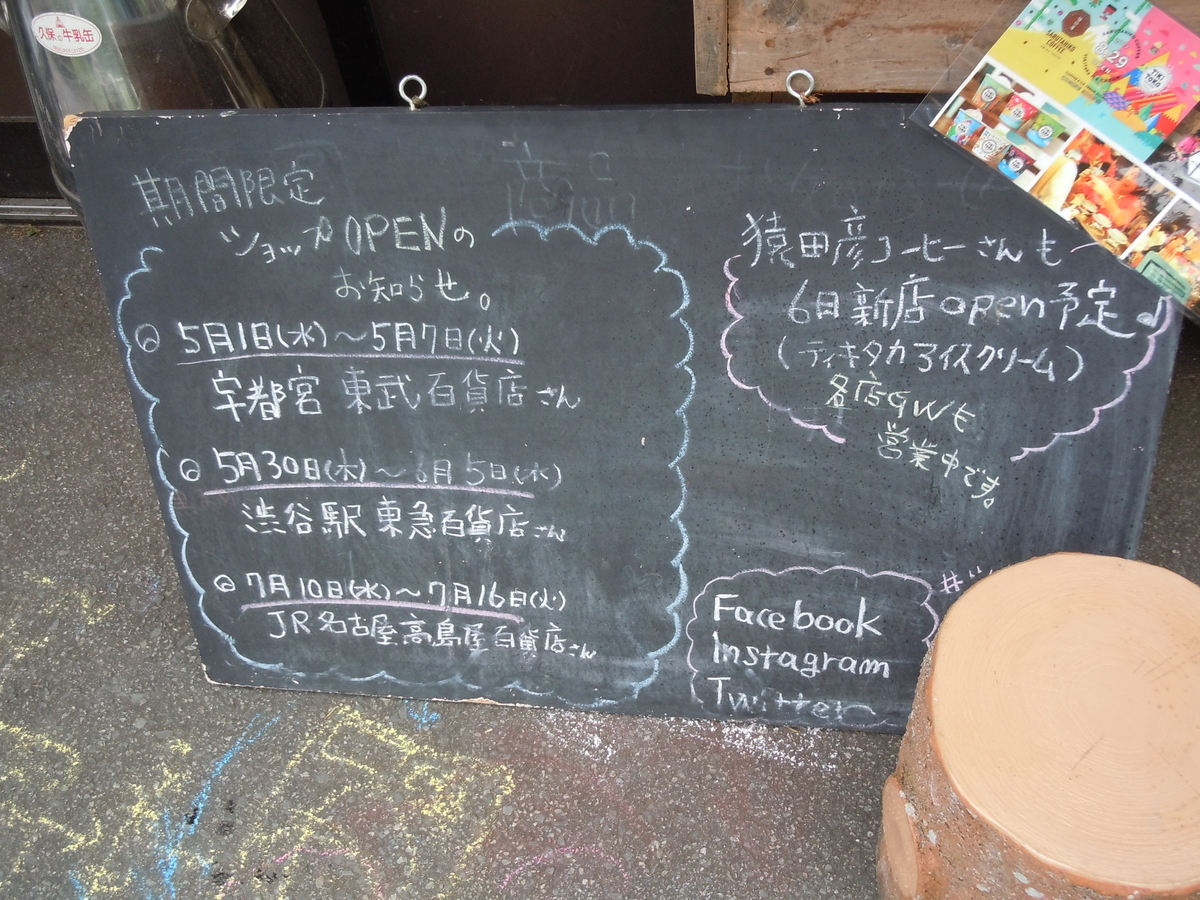 久保の牛乳缶
期間限定
ショップOPENの
お知らせ。
5月1日(水)～5月7日(火)
宇都宮 東武百貨店さん
5月30日(木)～6月5日(水)
渋谷駅 東急百貨店さん
7月10日(水)～7月16日(火)
JR名古屋高島屋百貨店さん
猿田彦コーヒーさんも
6日新店open予定♪
(ティキタカアイスクリーム)
各店GWも
営業中です。
Facebook
Instagram
Twitter
8.29
TIKI
TOKO